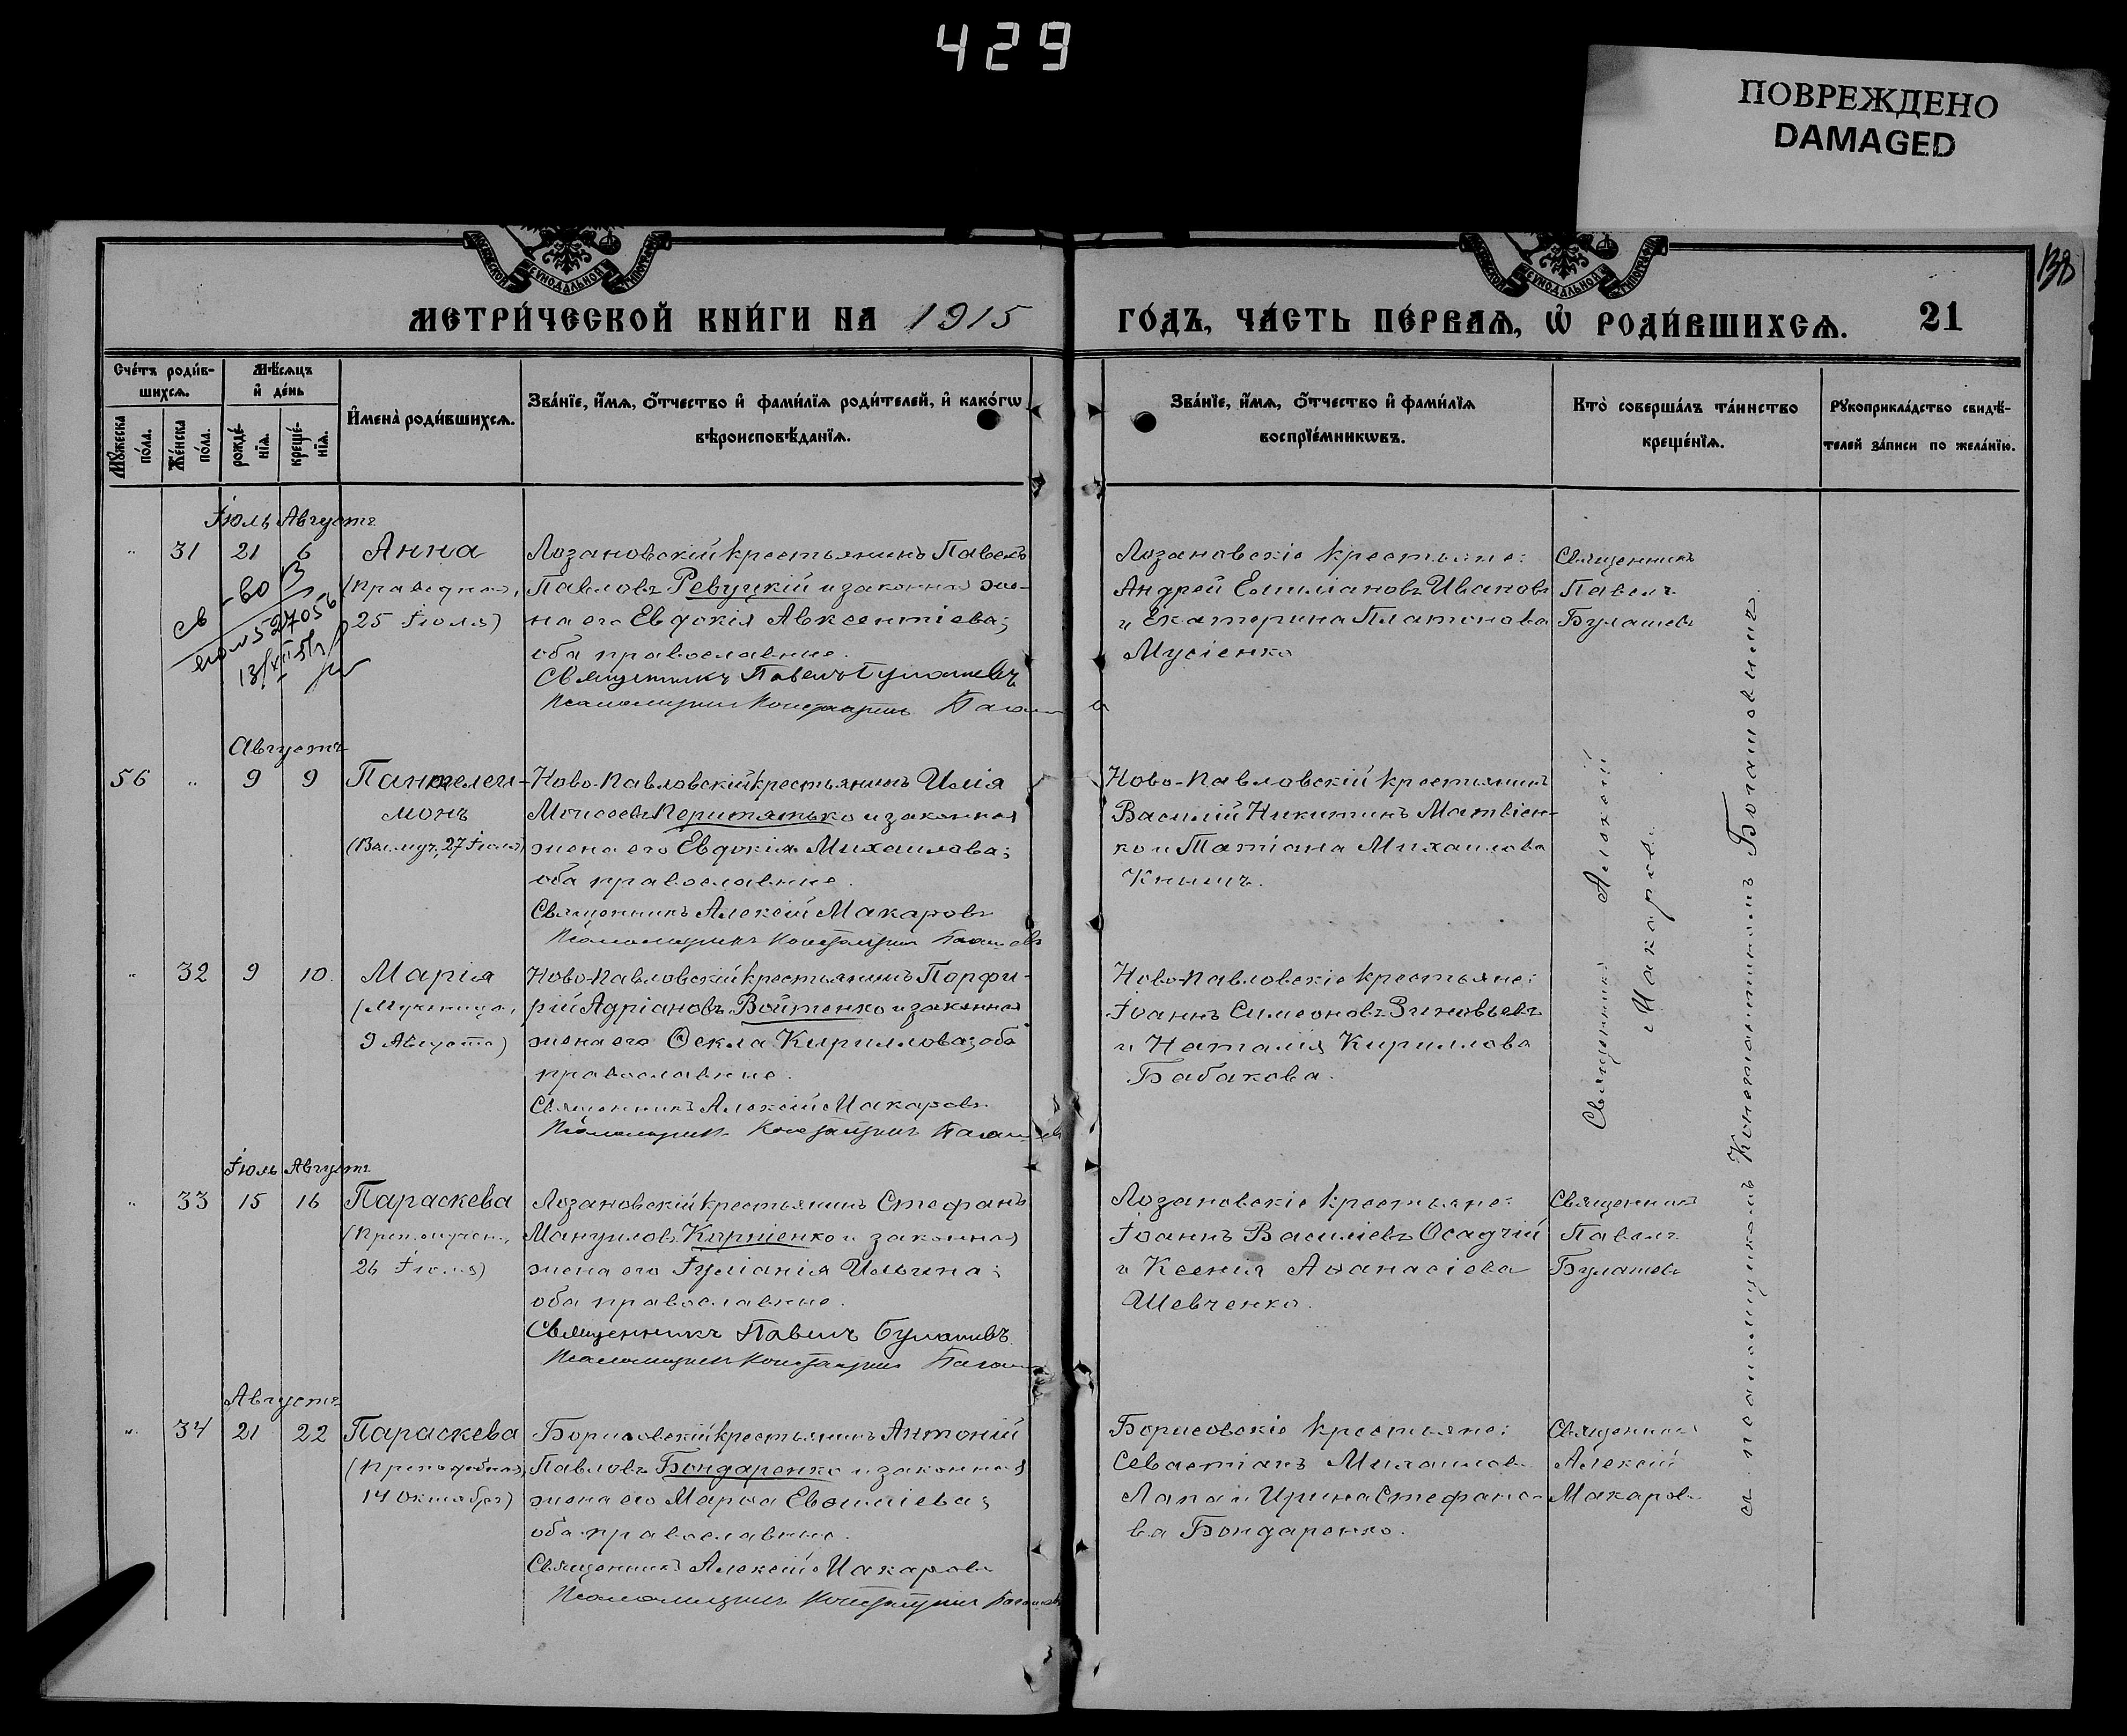 429
ПОВРЕЖДЕНО
DAMAGED
138
МЕТРИ́ЧЕСКОЙ КНИ́ГИ НА 1915
ГО́ДЪ, ЧА́СТЬ ПЕ́РВАѦ, Ѡ҆ РОДИ́ВШИХСѦ. 21
Сче́тъ роди́в-
шихсѧ.
Мꙋ́жеска по́ла.
Же́нска по́ла.
Мѣ́сѧцъ
и҆ де́нь
рожде́-
нїѧ.
креще́-
нїѧ.
И҆мена̀ роди́вшихсѧ.
Зва́нїе, и҆́мѧ, ѻ҆́тчество и҆ фами́лїѧ роди́телей, и҆ како́гѡ
вѣроисповѣ́данїѧ.
Зва́нїе, и҆́мѧ, ѻ҆́тчество и҆ фами́лїѧ
воспрїе́мникѡвъ.
Кто̀ соверша́лъ та́инство
креще́нїѧ.
Рꙋкоприкла́дство свидѣ́-
телей за́писи по жела́нїю.
Іюль Августъ
" 31 21 6 Анна
(Праведная,
25 Іюля)
Лозановскій крестьянинъ Павелъ
Павловъ Ревуцкій и законная же-
на его Евдокія Авксентіева;
оба православные.
Священникъ Павелъ Булашевъ
Псаломщикъ Константинъ
Лозановскіе крестьяне:
Андрей Емиліановъ Ивановъ
и Екатерина Платонова
Мусіенко
Священникъ
Павелъ
Булашевъ
Августъ
56 " 9 9 Пантелеи-
монъ
(Вел. муч., 27 Іюля)
Ново-Павловскій крестьянинъ Илія
Моисеевъ Перитятько и законная
жена его Евдокія Михаилова;
оба православные.
Священникъ Алексій Макаровъ
Псаломщикъ Константинъ
Ново-Павловскій крестьянинъ
Василій Никитинъ Матвіен-
ко и Татіана Михаилова
Книшъ.
" 32 9 10. Марія
(Мученица,
9 Августа)
Ново-Павловскій крестьянинъ Порфи-
рій Адріановъ Войтенко и законная
жена его Ѳекла Кириллова; оба
православные.
Священникъ Алексій Макаровъ
Псаломщикъ Константинъ
Ново-Павловскіе крестьяне:
Іоаннъ Симеоновъ Зиновьевъ
и Наталія Кириллова
Бабакова.
Священникъ Алексій
Макаровъ.
съ псаломщикомъ Константиномъ Богашовымъ.
Іюль Августъ
" 33 15 16 Параскева
(Преп. мучен.,
26 Іюля)
Лозановскій крестьянинъ Стефанъ
Мануиловъ Кирпіенко и законная
жена его Іуліанія Ильина;
оба православные.
Священникъ Павелъ Булашевъ.
Псаломщикъ Константинъ
Лозановскіе крестьяне:
Іоаннъ Василіевъ Осадчій
и Ксенія Аѳанасіева
Шевченко.
Священникъ
Павелъ
Булашевъ
Августъ
" 34 21 22 Параскева
(Преподобная,
14 Октября)
Борисовскій крестьянинъ Антоній
Павловъ Бондаренко и законная
жена его Марѳа Евѳиміева;
оба православные.
Священникъ Алексій Макаровъ
Псаломщикъ Константинъ
Борисовскіе крестьяне:
Севастіанъ Михаиловъ
Лапа и Ирина Стефано-
ва Бондаренко.
Священникъ
Алексій
Макаровъ